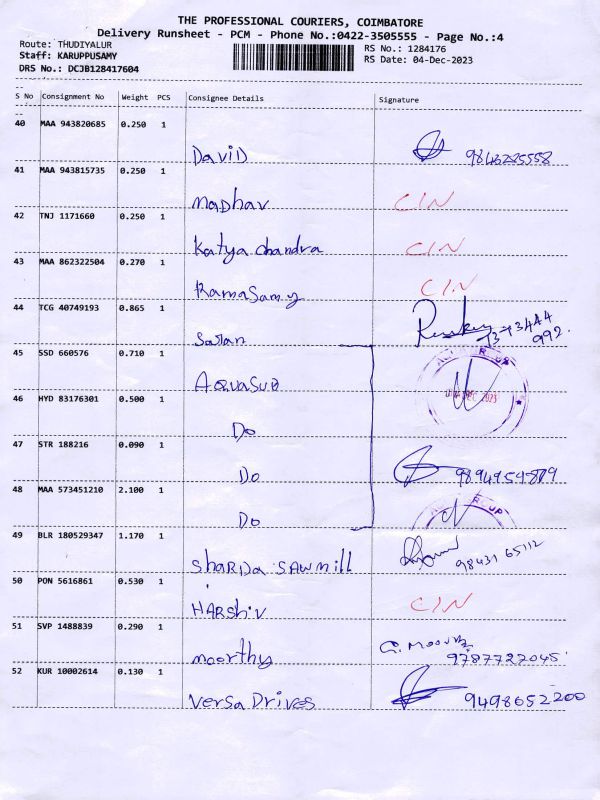 THE PROFESSIONAL COURIERS, COIMBATORE
Delivery Runsheet - PCM - Phone No.:0422-3505555 - Page No.:4
Route: THUDIYALUR
RS No.: 1284176
Staff: KARUPPUSAMY
RS Date: 04-Dec-2023
DRS No.: DCJB128417604
S No Consignment No Weight PCS Consignee Details Signature
40 MAA 943820685 0.250 1
DaviD
41 MAA 943815735 0.250 1
maDhav CIN
42 TNJ 1171660 0.250 1
Katya chandra CIN
43 MAA 862322504 0.270 1
RamaSamy CIN
44 TCG 40749193 0.865 1
Saran
992.
45 SSD 660576 0.710 1
AQvaSub
DEC 2023
46 HYD 83176301 0.500 1
Do
47 STR 188216 0.090 1
Do
48 MAA 573451210 2.100 1
Do
49 BLR 180529347 1.170 1
ShaRDa SAWmill 98431 65112
50 PON 5616861 0.530 1
HARshiv CIN
51 SVP 1488839 0.290 1
moorthy G. Moorthy 9787722045.
52 KUR 10002614 0.130 1
Versa Drives 9498652200